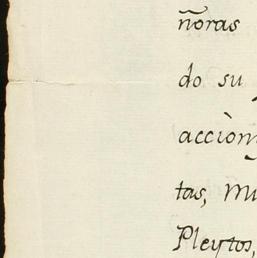 ñoras
do su
acciòn
tas, Mu
Pleytos,